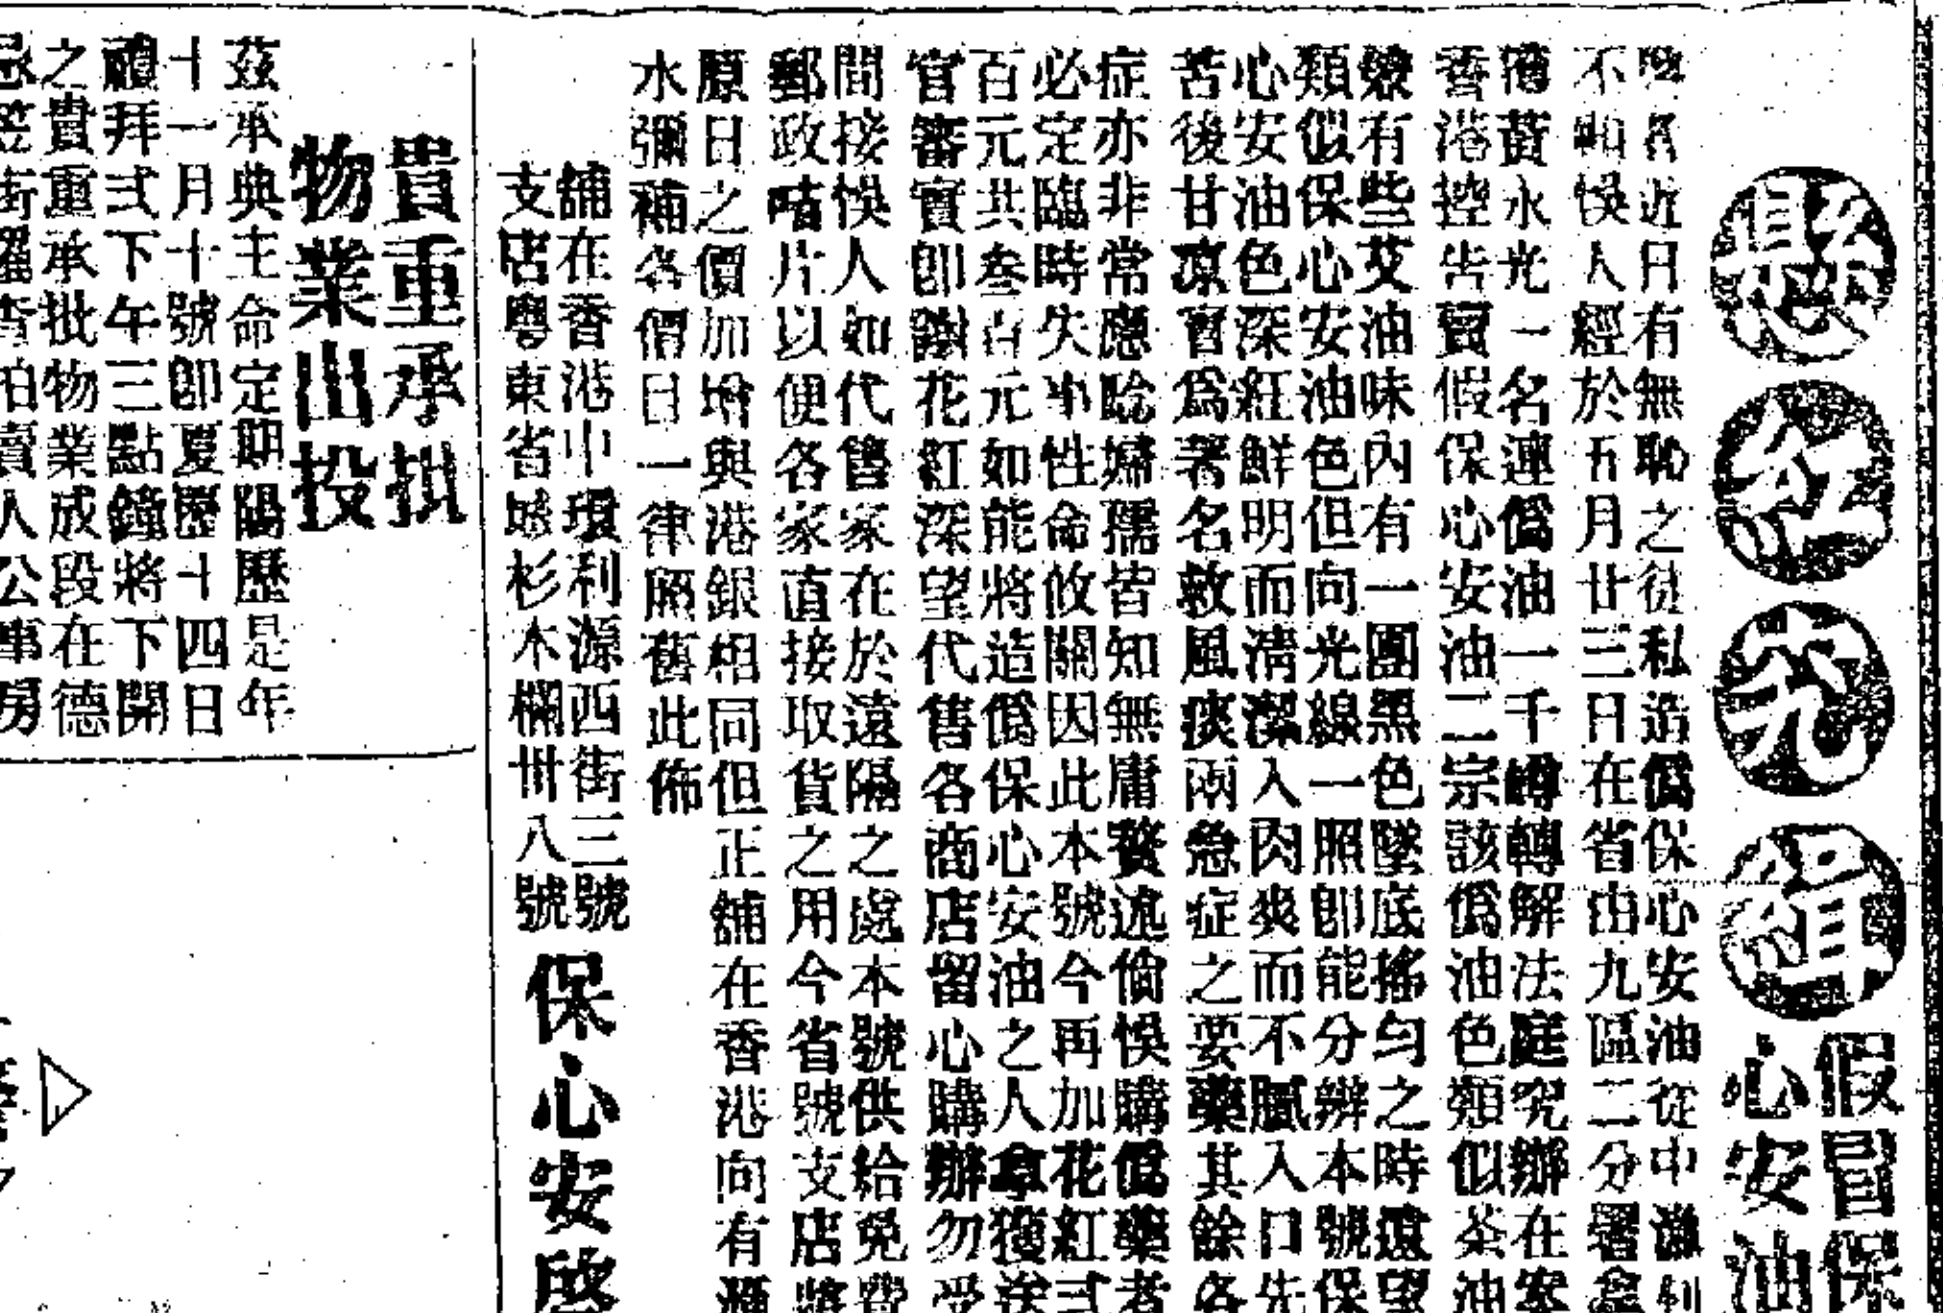 懸紅充緝
假冒保
心安油
近日有無恥之徒私造僞保心安油從中漁利
不顧悞人經於五月廿三日在省由九區二分署拿
獲黃永光一名連僞油一千罇轉解法庭究辦在案
香港控告賣假保心安油二宗該僞油色類似茶油
有些艾油味內有一團黑色墜底搖勻之時遠望
類似保心安油色但向光線一照卽能分辨本號保
心安油色深紅鮮明而淸潔入肉爽而不膩入口先
苦後甘凉實爲著名救風痰兩急症之要藥其餘各
症亦非常應騐婦孺皆知無庸贅述倘悞購僞藥者
必定臨時失事性命攸關因此本號今再加花紅弍
百元共叁百元如能將造僞保心安油之人拿獲送
官審實卽謝花紅深望代售各商店留心購辦勿受
間接悞人如代售家在於遠隔之處本號供給免費
郵政咭片以便各家直接取貨之用今省號支店將
原日之價加增與港銀相同但正舖在香港向有
水彌補各價目一律照舊此佈
舖在香港中環利源西街三號
支店粵東省城杉木欄卅八號
保心安啓
貴重承批
物業出投
茲承典主命定期陽歷是年
十一月十號卽夏歷十四日
禮拜弍下午三點鐘將下開
之貴重承批物業成段在德
忌笠街羅 拍賣人公事房